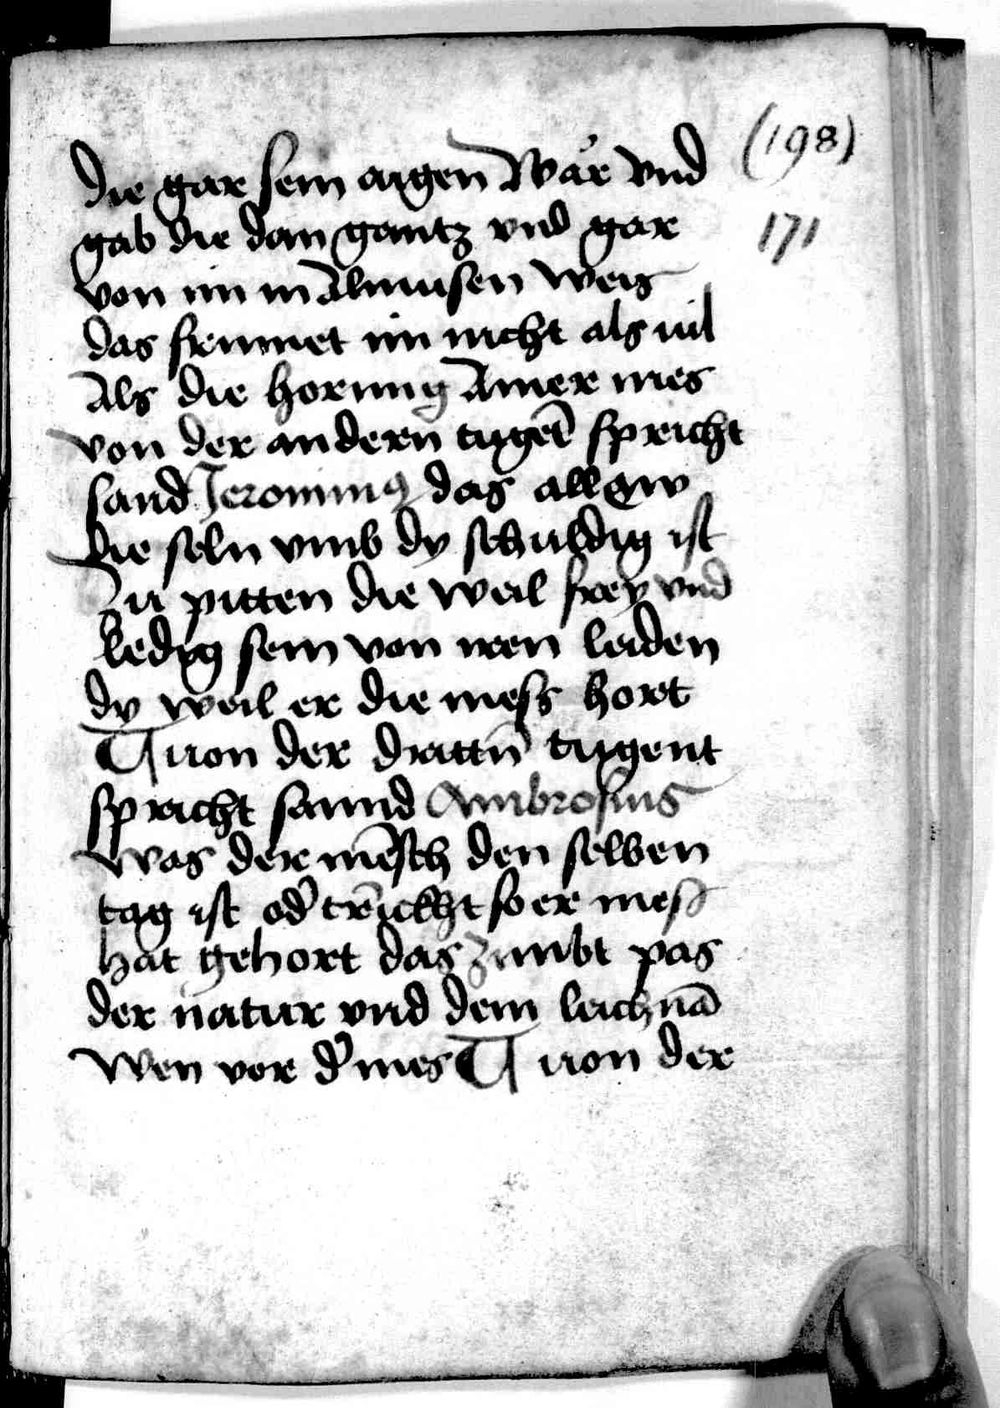 die gar sein aigen wär vnd
(198)
gab die dan gantz vnd gar
171
von im in Almusen weis
das frumet im nicht als uil
Als die horung Ainer mes
von der andern tugēt spricht
sand Jeronimus das all
die seln vmb dy er schuldig ist
Zu pitten die weil frey vnd
ledig sein von iren leiden
dy weil er die mess hort
¶ uon der drittn tugent
spricht sannd Ambrosius
was der mēsch den selben
tag ist od' trīckht so er mess
hat gehort das zimbt pas
der natur vnd dem leichnā
wen vor d' mes ¶ uon der